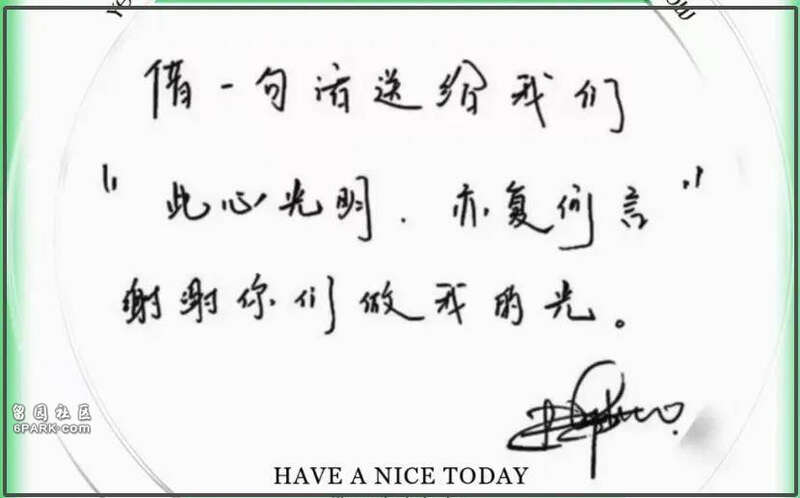 借一句话送给我们
“此心光明.亦复何言”
谢谢你们做我的光。
留园社区
6PARK.com
HAVE A NICE TODAY